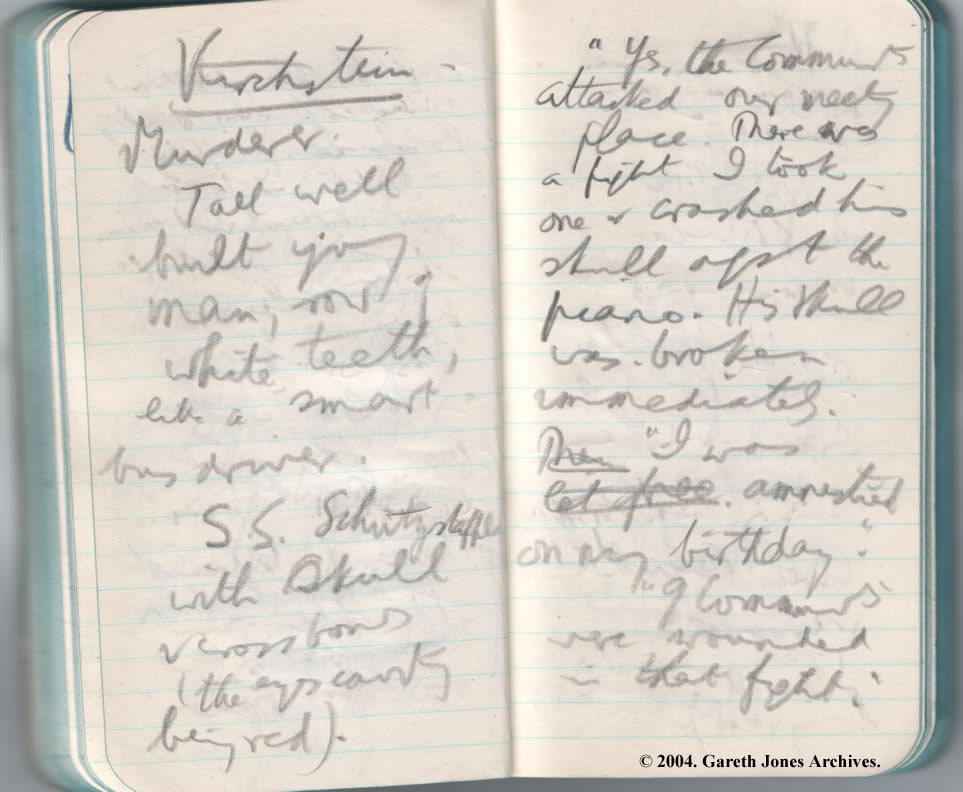 Kirchstein -
Murderer.
Tall well
built young
man, row of
white teeth,
like a smart
bus driver.
S.S. Schutzstaffel
with Skull
& cross bones
(the eyes cavity
being red).
"Yes, the Communists
attacked our meeting
place. There was
a fight I took
one & crashed his
skull agst the
piano. His skull
was broken
immediately.
Then "I was
let free. amnestied
on my birthday."
"9 Communists
were wounded
in that fight."
© 2004. Gareth Jones Archives.